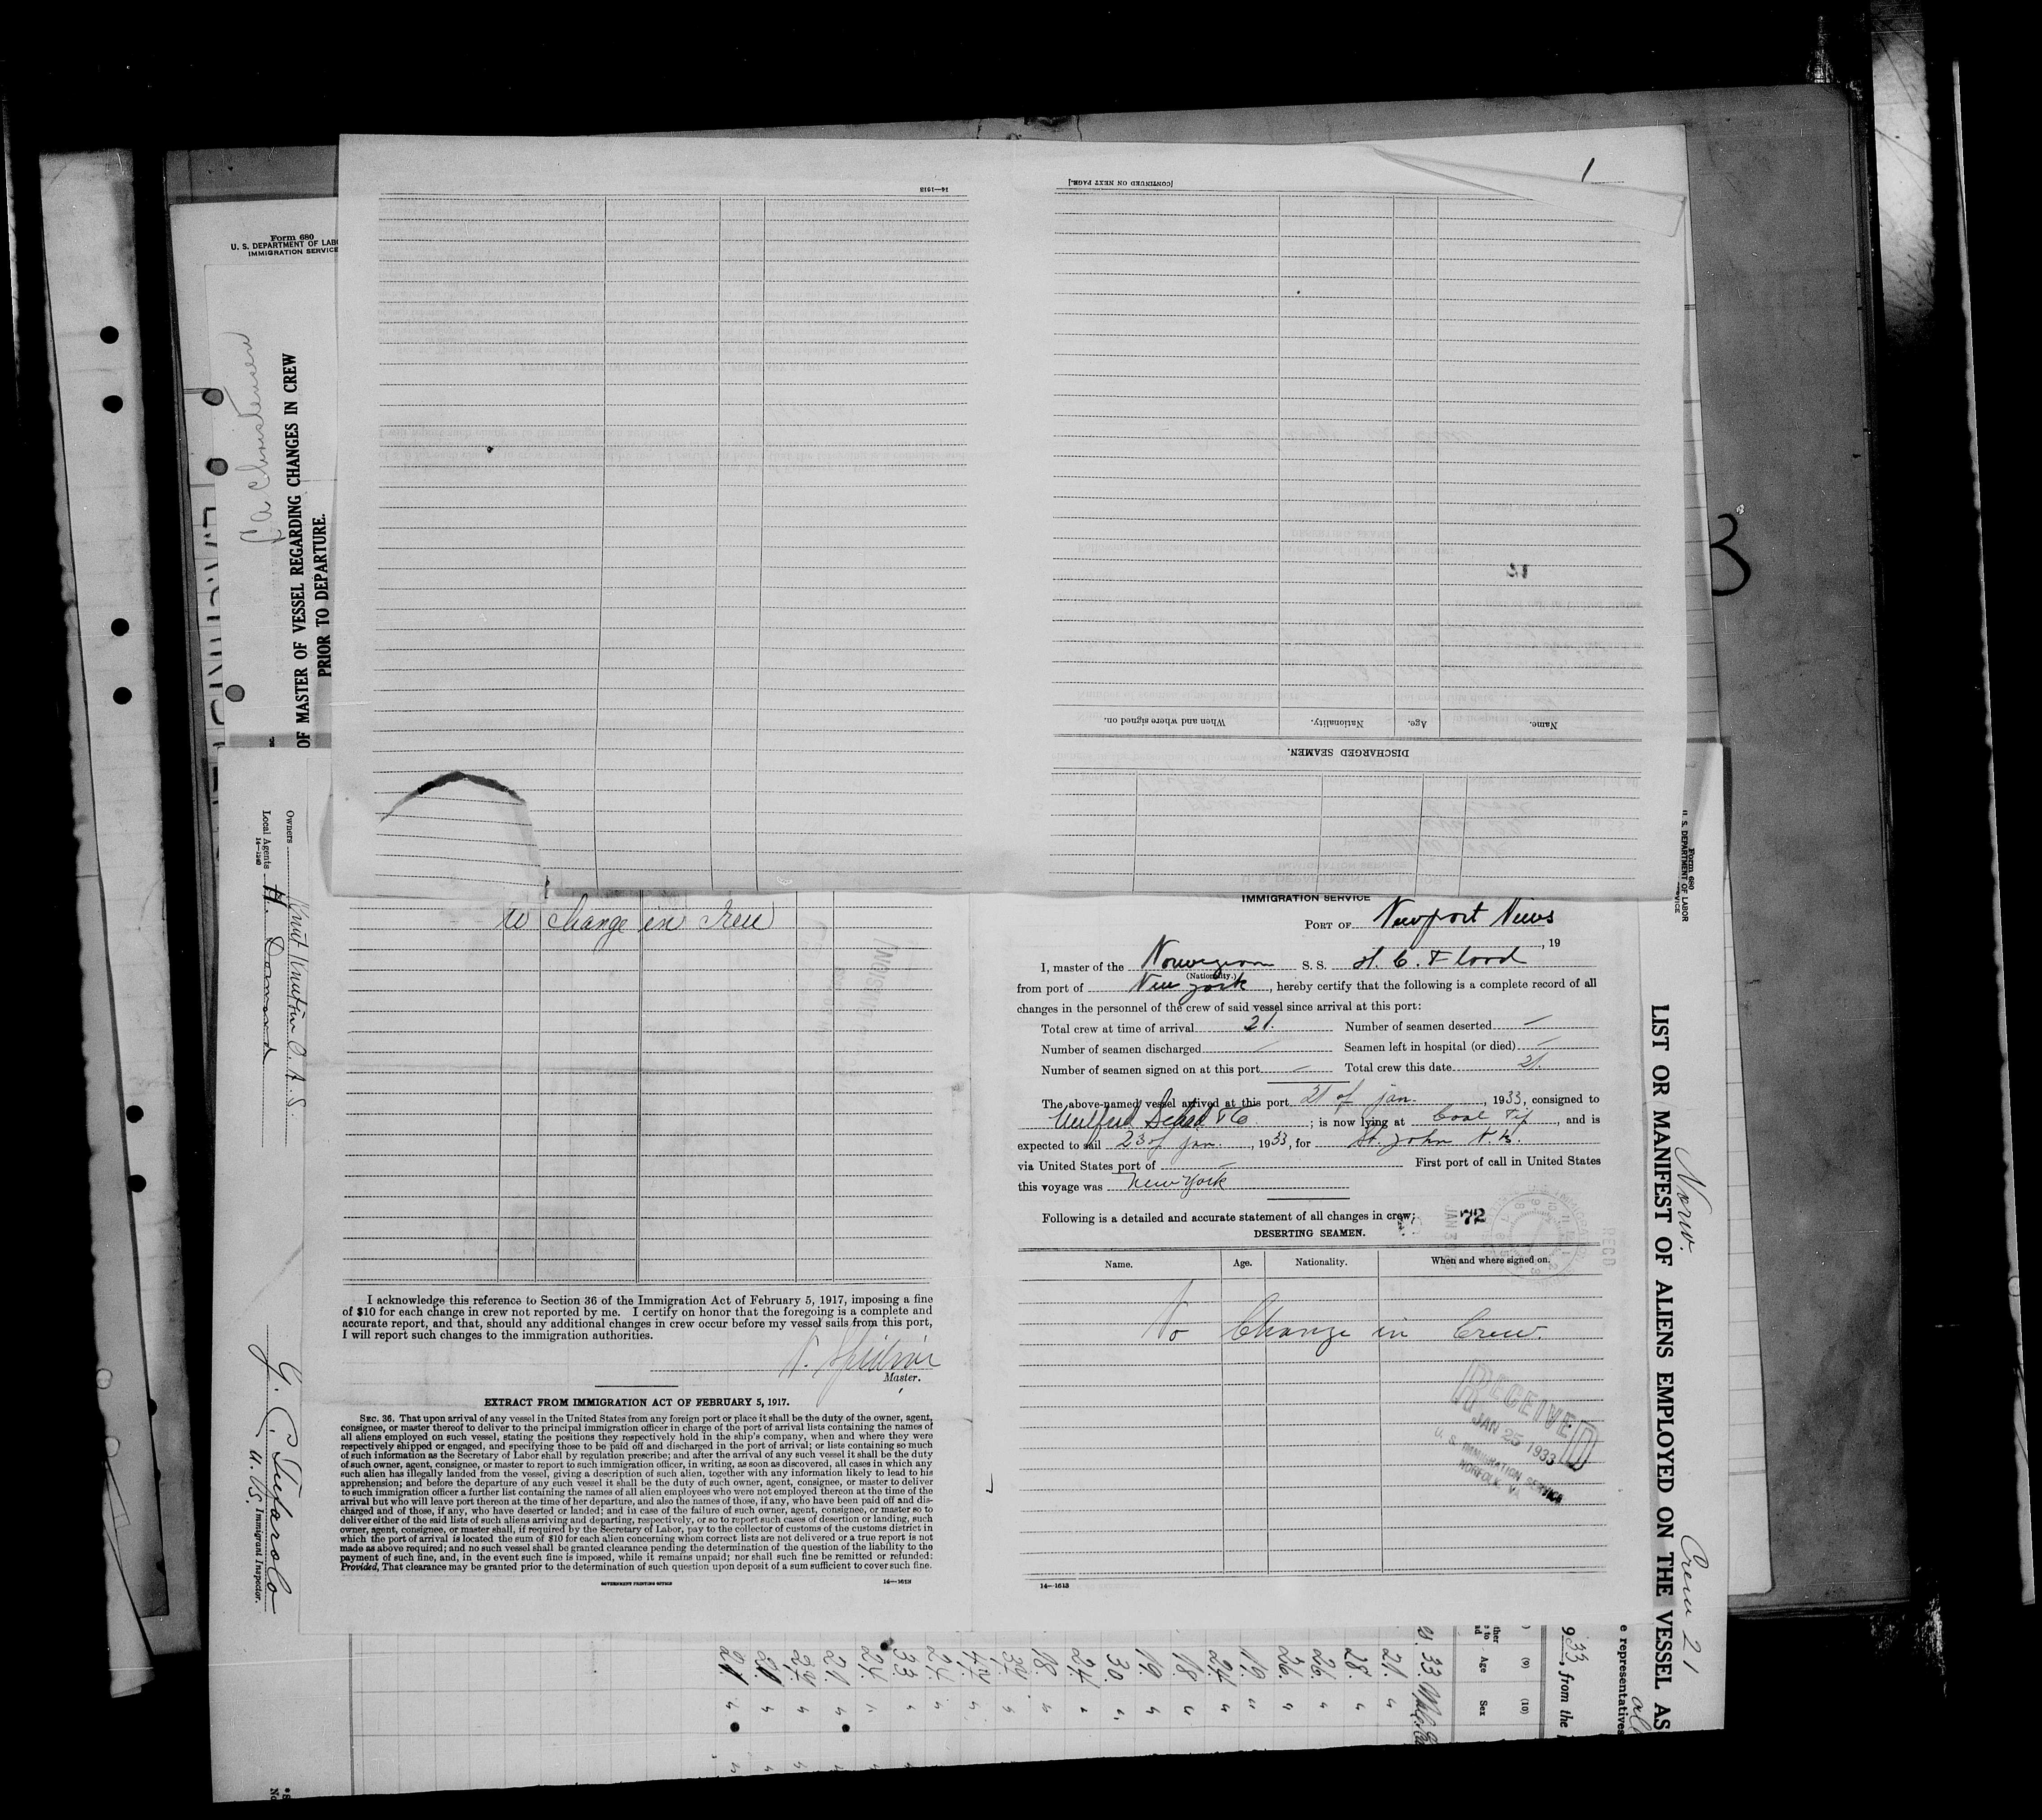 1
[CONTINUED ON NEXT PAGE.]
14—1613
Name.
Age.
Nationality.
When and where signed on.
DISCHARGED SEAMEN.
Form 680
U. S. DEPARTMENT OF LABO
IMMIGRATION SERVICE
OF MASTER OF VESSEL REGARDING CHANGES IN CREW
PRIOR TO DEPARTURE.
3
Owners
Knut Knutsen O. A. S
Local Agents
14—1240
U. S. Immigrant Inspector.
change in
I acknowledge this reference to Section 36 of the Immigration Act of February 5, 1917, imposing a fine
of $10 for each change in crew not reported by me. I certify on honor that the foregoing is a complete and
accurate report, and that, should any additional changes in crew occur before my vessel sails from this port,
I will report such changes to the immigration authorities.
Master.
EXTRACT FROM IMMIGRATION ACT OF FEBRUARY 5, 1917.
SEC. 36. That upon arrival of any vessel in the United States from any foreign port or place it shall be the duty of the owner, agent,
consignee, or master thereof to deliver to the principal immigration officer in charge of the port of arrival lists containing the names of
all aliens employed on such vessel, stating the positions they respectively hold in the ship's company, when and where they were
respectively shipped or engaged, and specifying those to be paid off and discharged in the port of arrival; or lists containing so much
of such information as the Secretary of Labor shall by regulation prescribe; and after the arrival of any such vessel it shall be the duty
of such owner, agent, consignee, or master to report to such immigration officer, in writing, as soon as discovered, all cases in which any
such alien has illegally landed from the vessel, giving a description of such alien, together with any information likely to lead to his
apprehension; and before the departure of any such vessel it shall be the duty of such owner, agent, consignee, or master to deliver
to such immigration officer a further list containing the names of all alien employees who were not employed thereon at the time of the
arrival but who will leave port thereon at the time of her departure, and also the names of those, if any, who have been paid off and dis-
charged and of those, if any, who have deserted or landed; and in case of the failure of such owner, agent, consignee, or master so to
deliver either of the said lists of such aliens arriving and departing, respectively, or so to report such cases of desertion or landing, such
owner, agent, consignee, or master shall, if required by the Secretary of Labor, pay to the collector of customs of the customs district in
which the port of arrival is located the sum of $10 for each alien concerning whom correct lists are not delivered or a true report is not
made as above required; and no such vessel shall be granted clearance pending the determination of the question of the liability to the
payment of such fine, and, in the event such fine is imposed, while it remains unpaid; nor shall such fine be remitted or refunded:
Provided, That clearance may be granted prior to the determination of such question upon deposit of a sum sufficient to cover such fine.
GOVERNMENT PRINTING OFFICE
14—1613
IMMIGRATION SERVICE
PORT OF Newport News
, 19
I, master of the Norwegian S. S. H. C. Flood
(Nationality.)
from port of New York, hereby certify that the following is a complete record of all
changes in the personnel of the crew of said vessel since arrival at this port:
Total crew at time of arrival 21. Number of seamen deserted —
Number of seamen discharged — Seamen left in hospital (or died) —
Number of seamen signed on at this port — Total crew this date 21.
The above-named vessel arrived at this port 21 of jan. , 1933, consigned to
; is now lying at Coal , and is
expected to sail 23 of jan. , 1933, for St. John N.B.
via United States port of — First port of call in United States
this voyage was New York
Following is a detailed and accurate statement of all changes in crew:
72
DESERTING SEAMEN.
Name. Age. Nationality. When and where signed on.
No Change in Crew.
RECEIVED
JAN 25 1933
U. S. IMMIGRATION SERVICE
NORFOLK VA
14—1613
Form 680
U. S. DEPARTMENT OF LABOR
LIST OR MANIFEST OF ALIENS EMPLOYED ON THE VESSEL AS
Norw.
Crew 21
e representatives
933, from the
(9) (10)
Age Sex
21.
28.
26.
26.
19.
24.
18.
19.
30.
24.
18.